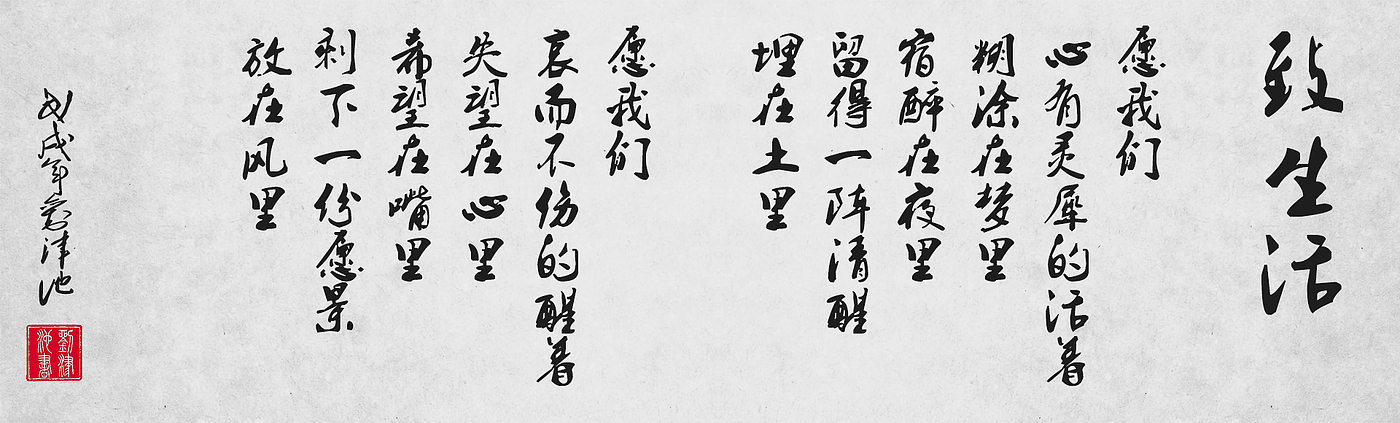 致生活
愿我们
心有灵犀的活着
糊涂在梦里
宿醉在夜里
留得一阵清醒
埋在土里
愿我们
哀而不伤的醒着
失望在心里
希望在嘴里
剩下一份愿景
放在风里
戊戌年刘津池
劉津
池書